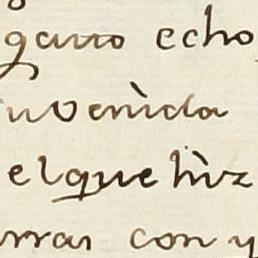 garro echo
uvenida
elque hiz
rras con y